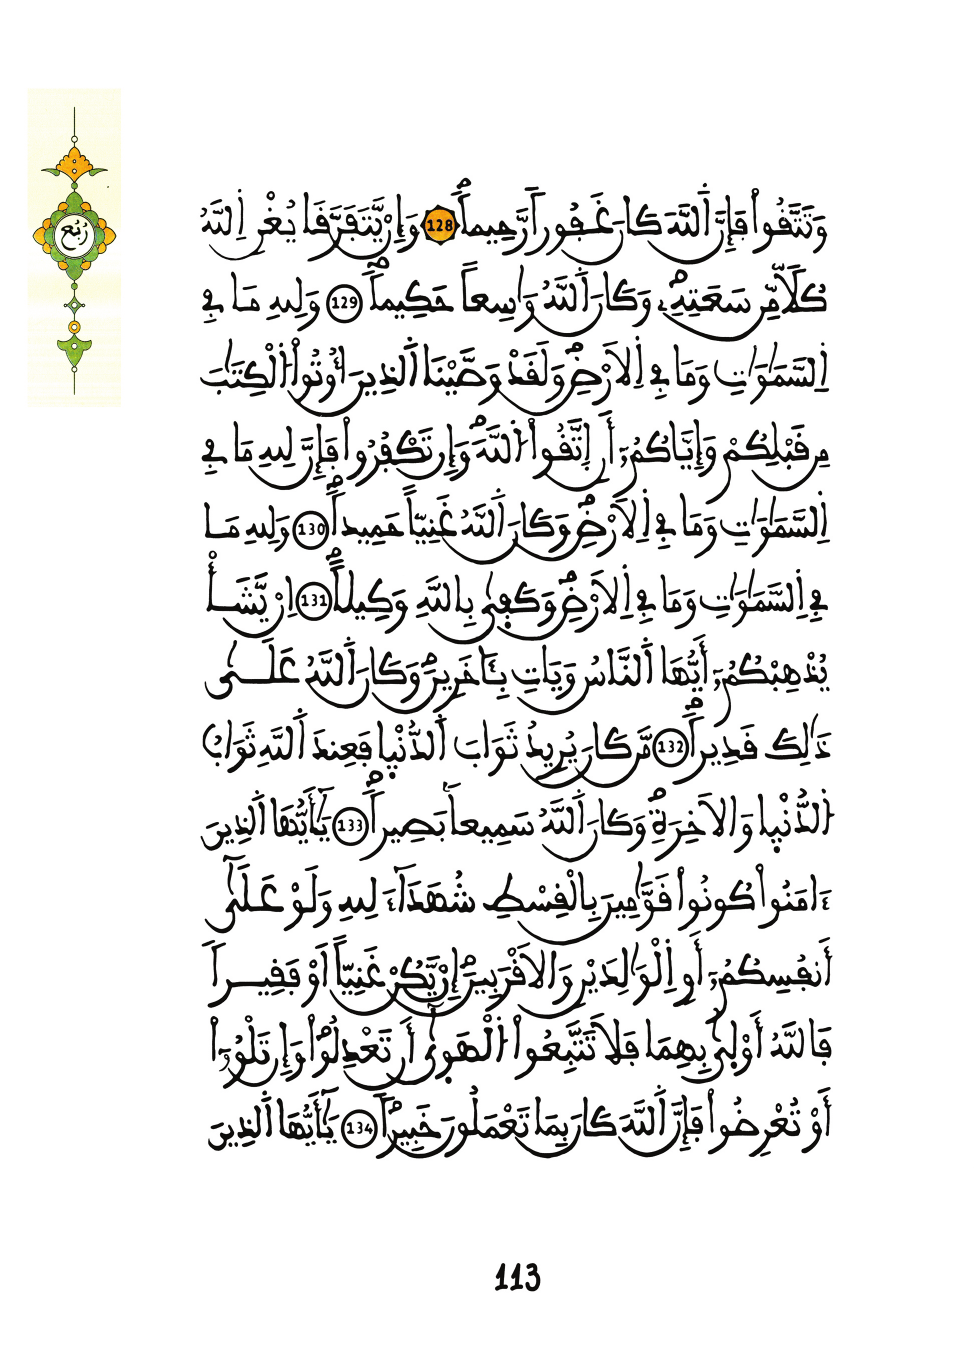 رُبُع
وَتَتَّقُواْ فَإِنَّ اَ۬للَّهَ كَانَ غَفُوراٗ رَّحِيماٗۖ 128 وَإِنْ يَّتَفَرَّقَا يُغْنِ اِ۬للَّهُ
كُلّاٗ مِّن سَعَتِهِۦۖ وَكَانَ اَ۬للَّهُ وَٰسِعاً حَكِيماٗۖ 129 وَلِلهِ مَا فِے
اِ۬لسَّمَٰوَٰتِ وَمَا فِے اِ۬لَارْضِۖ وَلَقَدْ وَصَّيْنَا اَ۬لذِينَ أُوتُواْ اُ۬لْكِتَٰبَ
مِن قَبْلِكُمْ وَإِيَّاكُمُۥٓ أَنِ اِ۪تَّقُواْ اُ۬للَّهَۖ وَإِن تَكْفُرُواْ فَإِنَّ لِلهِ مَا فِے
اِ۬لسَّمَٰوَٰتِ وَمَا فِے اِ۬لَارْضِۖ وَكَانَ اَ۬للَّهُ غَنِيّاً حَمِيداٗۖ 130 وَلِلهِ مَا
فِے اِ۬لسَّمَٰوَٰتِ وَمَا فِے اِ۬لَارْضِۖ وَكَفَىٰ بِاللَّهِ وَكِيلاًۖ 131 اِنْ يَّشَأْ
يُذْهِبْكُمُۥٓ أَيُّهَا اَ۬لنَّاسُ وَيَاتِ بِـَٔاخَرِينَۖ وَكَانَ اَ۬للَّهُ عَلَىٰ
ذَٰلِكَ قَدِيراٗۖ 132 مَّن كَانَ يُرِيدُ ثَوَابَ اَ۬لدُّنْي۪ا فَعِندَ اَ۬للَّهِ ثَوَابُ
اُ۬لدُّنْي۪ا وَالَاخِرَةِۖ وَكَانَ اَ۬للَّهُ سَمِيعاَۢ بَصِيراٗۖ 133 يَٰٓأَيُّهَا اَ۬لذِينَ
ءَامَنُواْ كُونُواْ قَوَّٰمِينَ بِالْقِسْطِ شُهَدَآءَ لِلهِ وَلَوْ عَلَىٰٓ
أَنفُسِكُمُۥٓ أَوِ اِ۬لْوَٰلِدَيْنِ وَالَاقْرَبِينَۖ إِنْ يَّكُنْ غَنِيّاً اَوْ فَقِيراٗ
فَاللَّهُ أَوْل۪ىٰ بِهِمَا فَلَا تَتَّبِعُواْ اُ۬لْهَو۪ىٰٓ أَن تَعْدِلُواْۖ وَإِن تَلْوُۥٓاْ
أَوْ تُعْرِضُواْ فَإِنَّ اَ۬للَّهَ كَانَ بِمَا تَعْمَلُونَ خَبِيراٗۖ 134 يَٰٓأَيُّهَا اَ۬لذِينَ
113